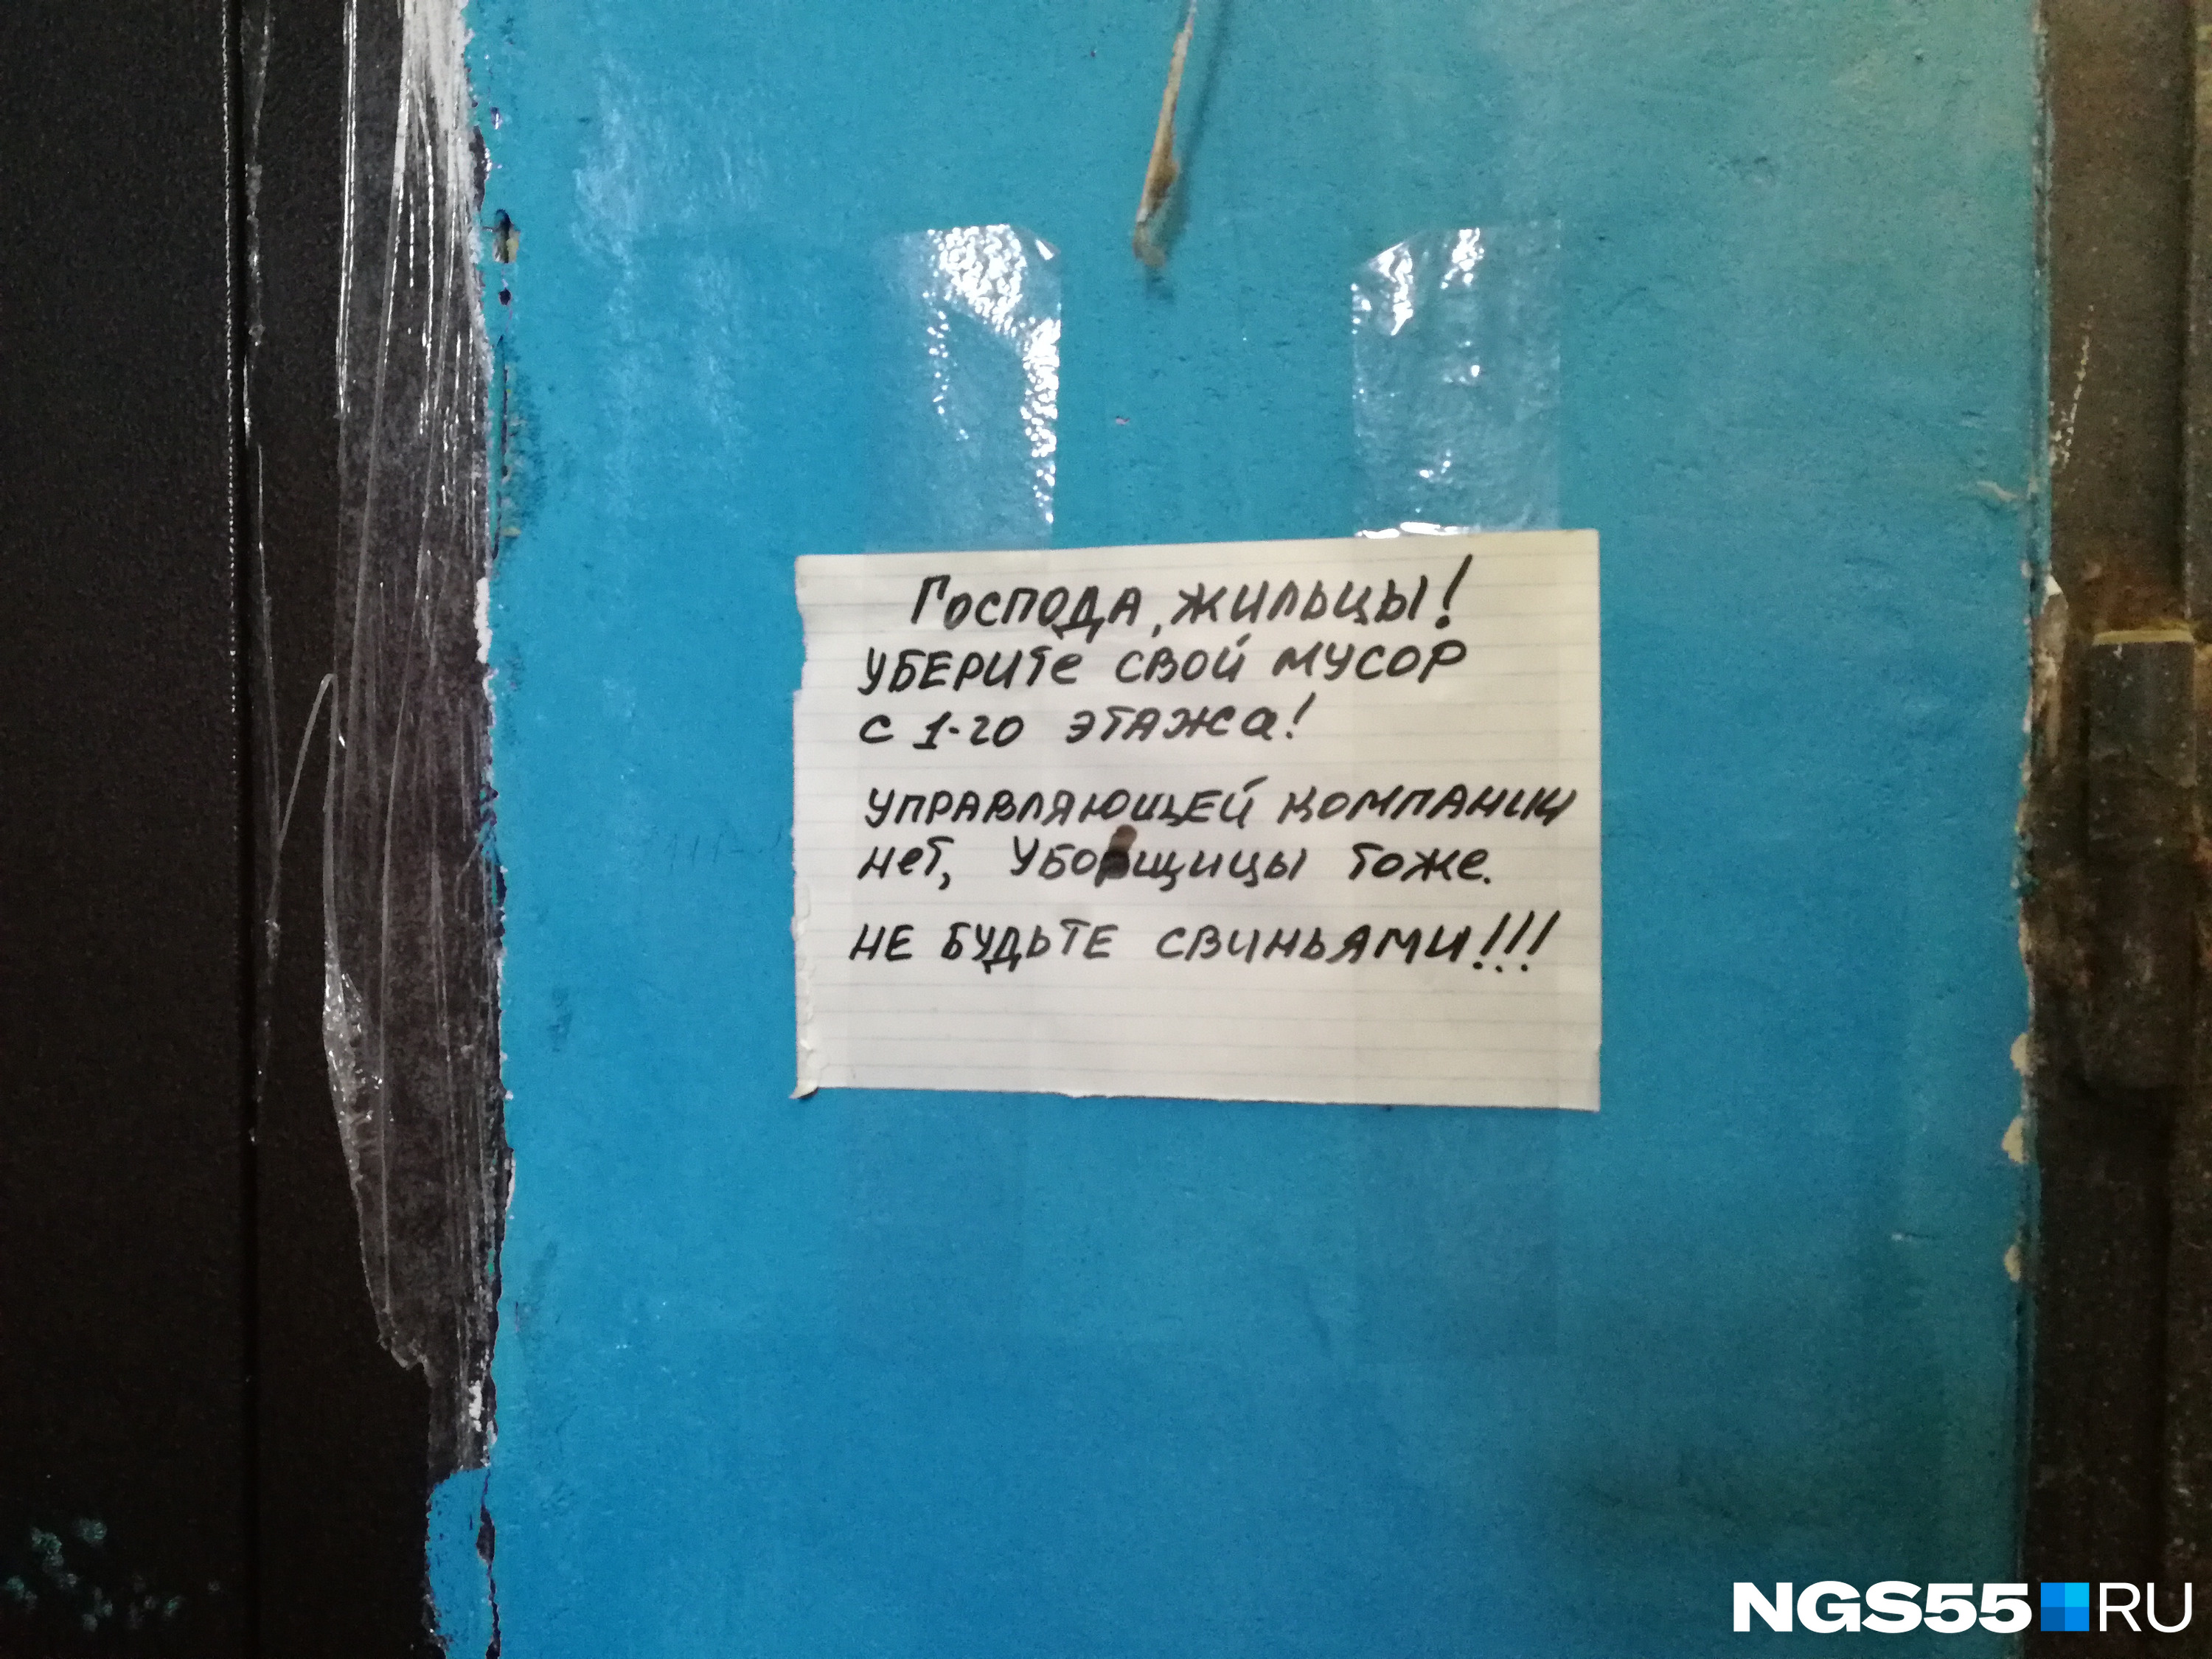 Господа, жильцы!
УБЕРИТе СВОЙ МУСОР
с 1-го ЭТАЖа!
УПРАВЛЯЮЩЕЙ КОМПАНИИ
нет, Уборщицы тоже.
НЕ БУДЬТЕ СВИНЬЯМИ!!!
NGS55 RU